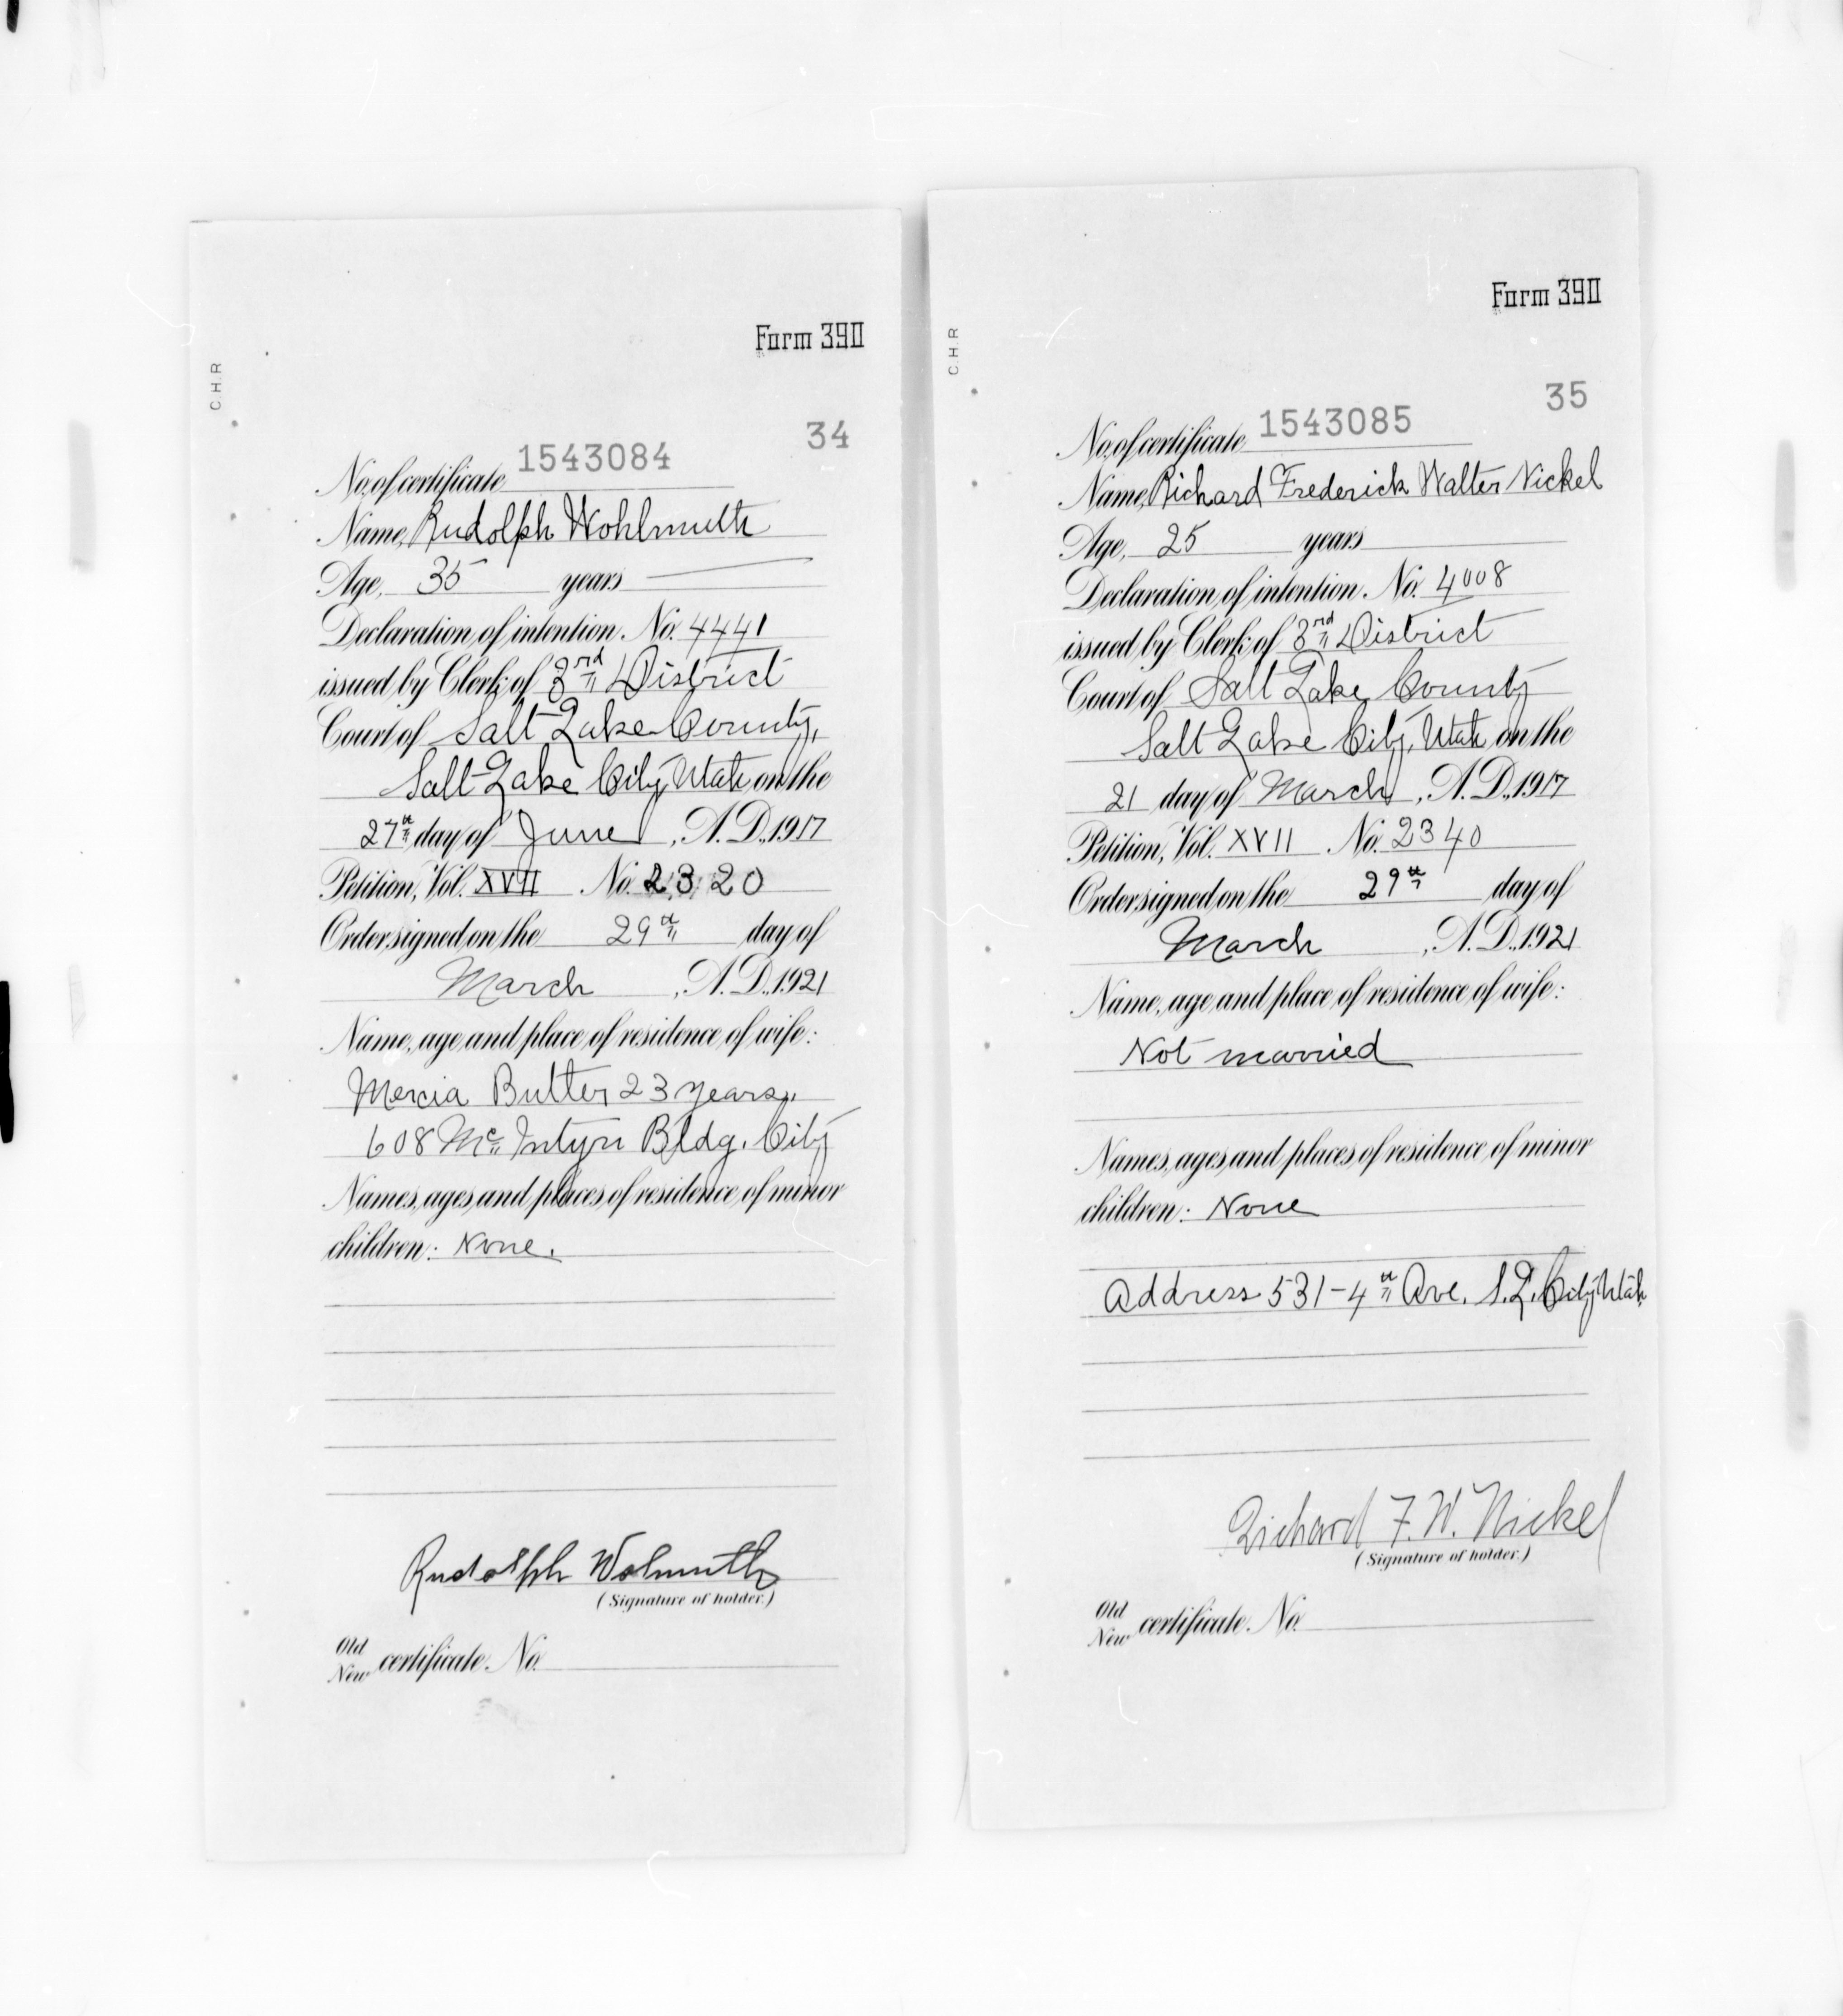 C.H.R
Form 390
34
No. of certificate 1543084
Name, Rudolph Wohlmuth
Age, 35 years
Declaration of intention. No. 4441
issued by Clerk of 3rd District
Court of Salt Lake County,
Salt Lake City, Utah on the
27th day of June, A.D., 1917
Petition, Vol. XVII No. 2320
Order signed on the 29th day of
March, A.D., 1921
Name, age and place of residence of wife:
Mercia Butter 23 years,
608 Mc Intyre Bldg. City
Names, ages and places of residence of minor
children: None.
Rudolph Wolmuth
(Signature of holder.)
Old
New certificate. No.
C.H.R
Form 390
35
No. of certificate 1543085
Name, Richard Frederick Walter Nickel
Age, 25 years
Declaration of intention. No. 4008
issued by Clerk of 3rd District
Court of Salt Lake County
Salt Lake City, Utah on the
21 day of March, A.D., 1917
Petition, Vol. XVII No. 2340
Order signed on the 29th day of
March, A.D., 1921
Name, age and place of residence of wife:
Not married
Names, ages and places of residence of minor
children: None
Address 531-4th Ave. S.L. City Utah
Richard F. W. Nickel
(Signature of holder.)
Old
New certificate. No.